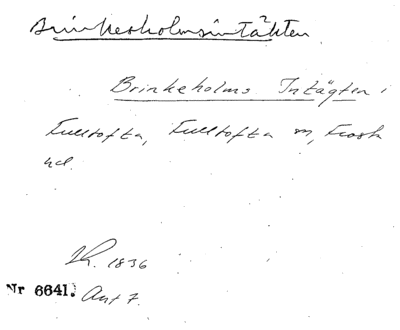 Brinkesholmsintäkten
Brinkeholms Intägten i
Fulltofta, Fulltofta sn, Frosta
hd.
1836
Nr 6641. Akt 7.